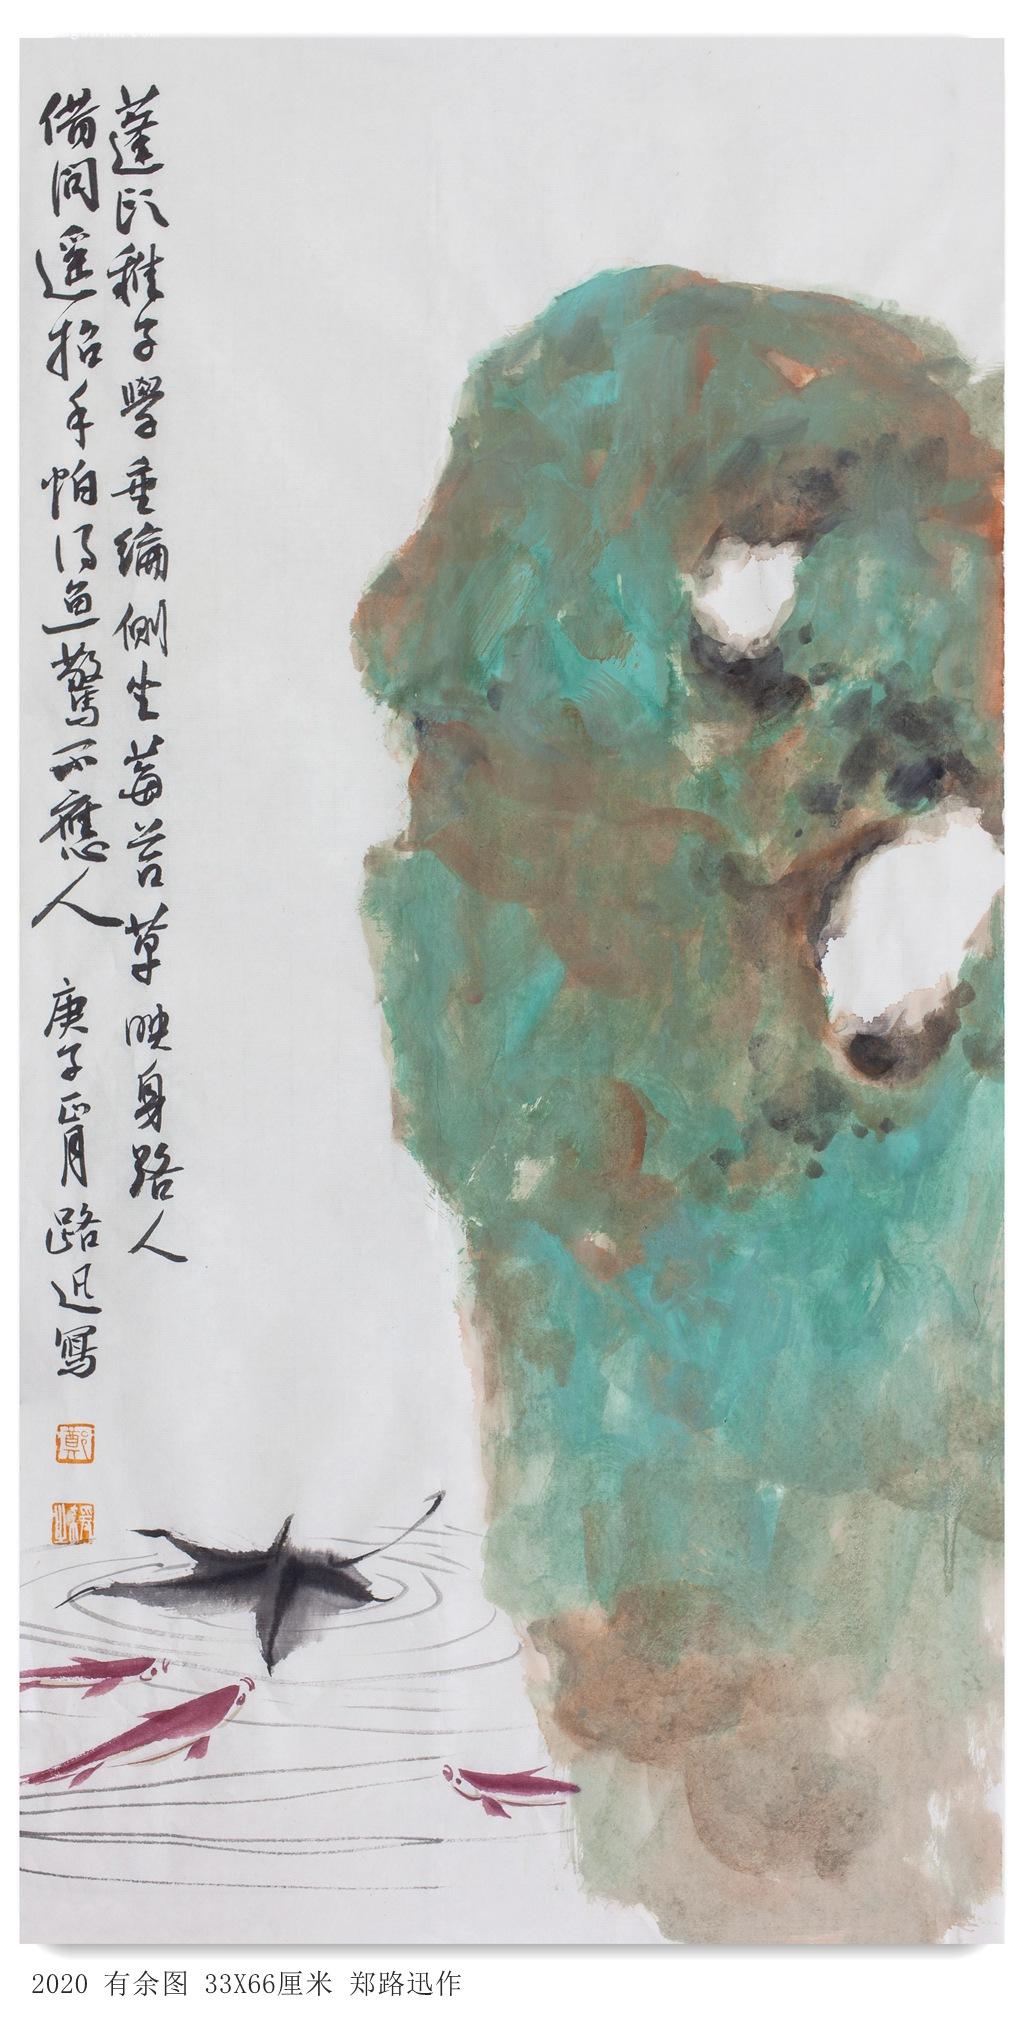 蓬头稚子學垂綸側坐莓苔草映身路人
借问遥招手怕得鱼驚不應人 庚子正月 路迅寫
鄭
2020 有余图 33X66厘米 郑路迅作